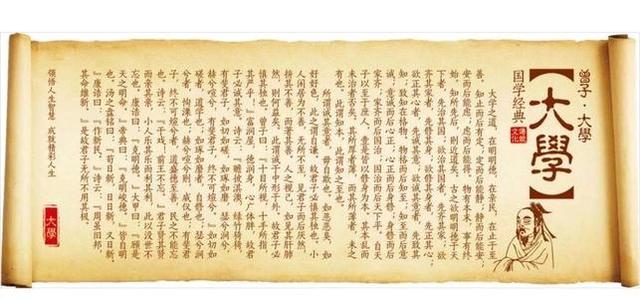 曾子·大學
【大學】
国学经典
傳統文化
大學之道，在明明德，在亲民，在止于至
善。知止而后有定，定而后能静，静而后能安，
安而后能虑，虑而后能得。物有本末，事有终
始。知所先后，则近道矣。古之欲明明德于天
下者，先治其国；欲治其国者，先齐其家；欲
齐其家者，先修其身；欲修其身者，先正其心；
欲正其心者，先诚其意；欲诚其意者，先致其
知；致知在格物。物格而后知至，知至而后意
诚，意诚而后心正，心正而后身修，身修而后
家齐，家齐而后国治，国治而后天下平。自天
子以至于庶人，壹是皆以修身为本。其本乱而
末治者否矣。其所厚者薄，而其所薄者厚，未之
有也。此谓知本，此谓知之至也。
所谓诚其意者，毋自欺也。如恶恶臭，如
好好色，此之谓自谦。故君子必慎其独也。小
人闲居为不善，无所不至，见君子而后厌然，
掩其不善，而著其善。人之视己，如见其肺肝
然，则何益矣。此谓诚于中形于外，故君子必
慎其独也。曾子曰：『十目所视，十手所指，
其严乎！』富润屋，德润身，心广体胖，故君
子必诚其意。诗云：『瞻彼淇澳，菉竹猗猗。
有斐君子，如切如磋，如琢如磨。瑟兮僩兮，
赫兮喧兮。有斐君子，终不可諠兮！』如切如
磋者，道学也；如琢如磨者，自修也；瑟兮僩
兮者，恂慄也；赫兮喧兮者，威仪也；有斐君
子，终不可諠兮者，道盛德至善，民之不能忘
也。诗云：『于戏，前王不忘！』君子贤其贤
而亲其亲，小人乐其乐而利其利，此以没世不
忘也。康诰曰：『克明德。』大甲曰：『顾諟
天之明命。』帝典曰：『克明峻德。』皆自明
也。汤之盘铭曰：『苟日新，日日新，又日新。
』康诰曰：『作新民。』诗曰：『周虽旧邦，
其命维新。』是故君子无所不用其极。
领悟人生智慧 成就精彩人生
大學